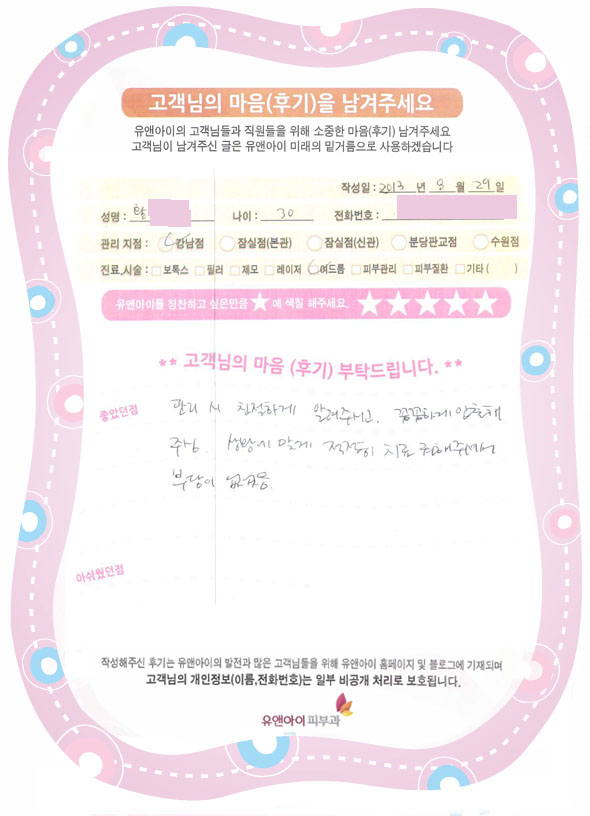 고객님의 마음(후기)을 남겨주세요
유앤아이의 고객님들과 직원들을 위해 소중한 마음(후기) 남겨주세요
고객님이 남겨주신 글은 유앤아이 미래의 밑거름으로 사용하겠습니다
작성일 : 2013 년 8 월 29 일
성명 : 나이 : 30 전화번호 :
관리 지점 : 강남점 잠실점(본관) 잠실점(신관) 분당판교점 수원점
진료,시술 : 보톡스 필러 제모 레이저 여드름 피부관리 피부질환 기타 ( )
유앤아이를 칭찬하고 싶은만큼 ★ 에 색칠 해주세요. ★★★★★
** 고객님의 마음 (후기) 부탁드립니다. **
좋았던점 관리 시 친절하게 알려주시고, 꼼꼼하게 압출해
주심. 상황에 맞게 적절히 치료 권해주셔서
부담이 없었음.
아쉬웠던점
작성해주신 후기는 유앤아이의 발전과 많은 고객님들을 위해 유앤아이 홈페이지 및 블로그에 기재되며
고객님의 개인정보(이름,전화번호)는 일부 비공개 처리로 보호됩니다.
유앤아이 피부과